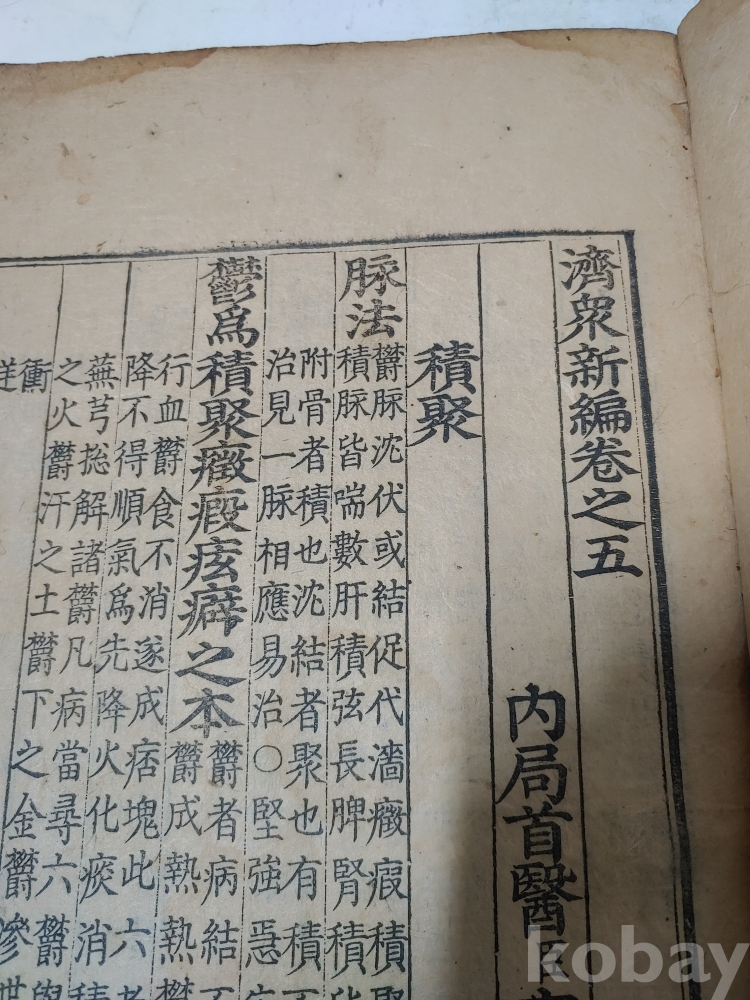 濟衆新編卷之五
內局首醫臣
積聚
脉法
欝脉沈伏或結促代濇癥瘕積聚
積脉皆喘數肝積弦長脾腎積
附骨者積也沈結者聚也有積不
治見一脉相應易治○堅強急生
鬱爲積聚癥瘕痃癖之本
欝者病結不
欝成熱熱欝
行血欝食不消遂成痞塊此六者
降不得順氣爲先降火化痰消積
蕪芎摠解諸欝凡病當尋六欝與
之火欝汗之土欝下之金欝滲
衝
kobay